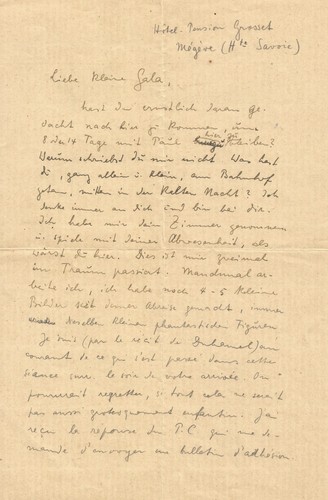 Hôtel-Pension Grosset
Mégève (Hte Savoie)
Liebe kleine Gala,
hast Du ernstlich daran ge-
dacht nach hier zu kommen, ums
8 oder 14 Tage mit Paul hier zu bleiben?
Warum schriebst Du mir nicht Was hast
du, ganz allein u. klein, am Bahnhof
getan, mitten in der kalten Nacht? Ich
denke immer an dich und bin bei dir.
Ich habe mir dein Zimmer genommen
u. spiele mit deiner Abwesenheit, als
wärst Du hier. Dies ist mir zweimal
im Traum passiert. Manchmal ar-
beite ich, ich habe noch 4-5 kleine
Bilder seit deiner Abreise gemacht, immer
dieselben kleinen phantastischen Figuren
Je suis (par le récit de Duhamel) au
courant de ce qui s'est passé dans cette
séance sur le soir de votre arrivée. On
pourrait regretter, si tout cela ne serait
pas aussi grotesquement enfantin. J'ai
reçu la reponse du P.C qui me de-
mande d'envoyer un bulletin d'adhésion.